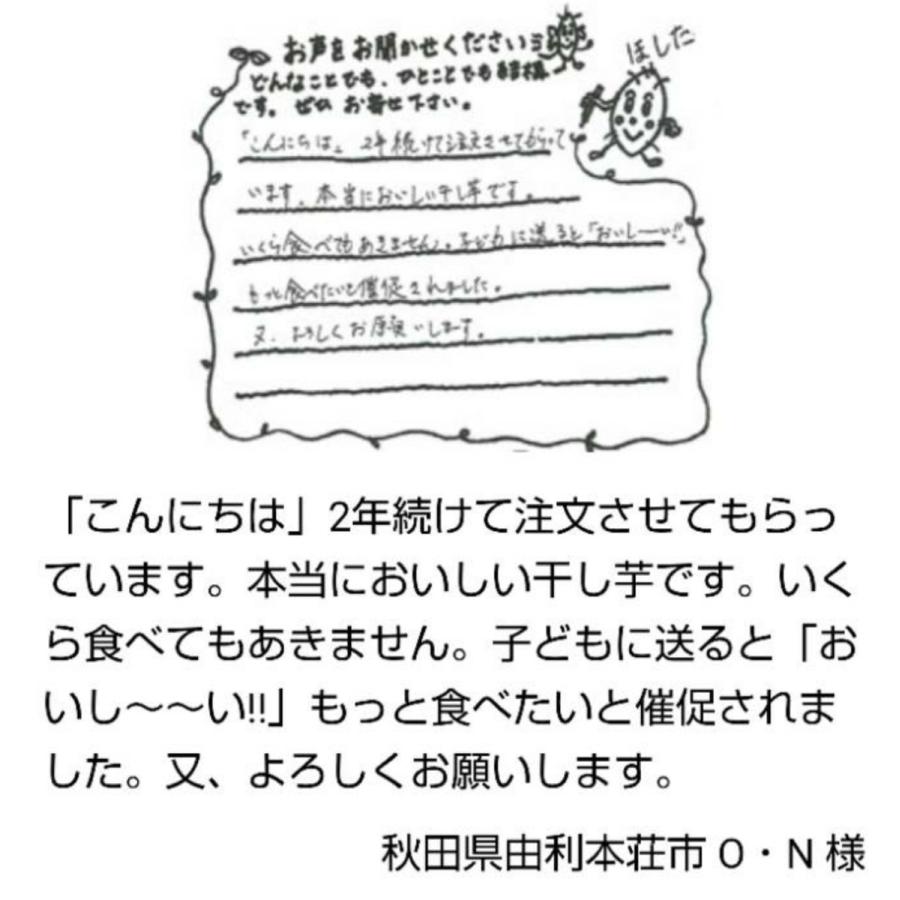 お声をお聞かせください
どんなことでも、ひとことでも結構
です。ぜひ お寄せ下さい。
ほした
「こんにちは」 2年続けて注文させてもらって
います。本当においしい干し芋です。
いくら食べてもあきません。子どもに送ると「おいし〜〜い!!」
もっと食べたいと催促されました。
又、よろしくお願いします。
「こんにちは」2年続けて注文させてもらっ
ています。本当においしい干し芋です。いく
ら食べてもあきません。子どもに送ると「お
いし〜〜い!!」もっと食べたいと催促されま
した。又、よろしくお願いします。
秋田県由利本荘市 O・N 様